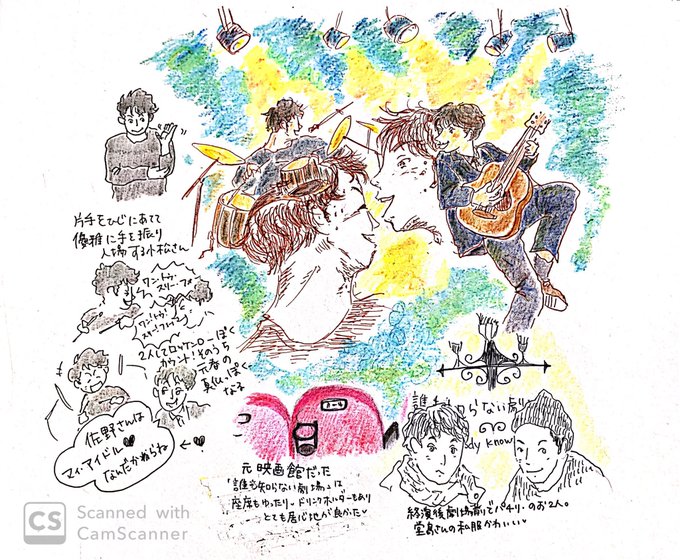 片手をひじにあてて
優雅に手を振り
入場する小松さん
ワン・トゥ・
スリー・フォー
ワン・トゥ!
スリー・フォー
2人してロックンローぽく
カウント!そのうち
元春の
真似っぽく
なる
佐野さんは
マイ・アイドル♥
なんだかねらね
元映画館だった
「誰も知らない劇場」は
座席もゆったり・ドリンクホルダーもあり
とても居心地が良かた♥
誰も知らない劇
dy know
終演後劇場前でパチリ・のお2人。
堂島さんの私服かわいい♥
CS Scanned with
CamScanner